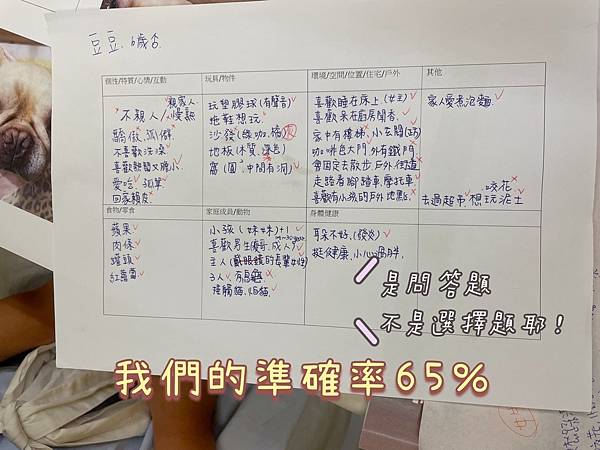 豆豆. 6歲否
個性/特質/心情/互動
玩具/物件
環境/空間/位置/住宅/戶外
其他
親家人
不親人/慢熱
驕傲、孤僻
不喜歡洗澡
喜歡熱鬧又膽小
愛吃、孤單
回家賴皮
玩塑膠球(有聲音)
拖鞋想玩
沙發(綠.咖.橘)
地板(木質.深色)
窩(圓.中間有洞)
喜歡睡在床上(女主)
喜歡呆在廚房聞香
家中有樓梯、小玄關
咖啡色大門.外有鐵門
會固定去散步 戶外街道
走路看腳踏車.摩托車
喜歡有小孩的戶外地點
家人愛煮泡麵
咬花
去過超市.想玩泥土
食物/零食
家庭成員/動物
身體健康
蘋果
肉條
罐頭
紅蘿蔔
小孩(妹妹)+1
喜歡男生
主人(戴眼鏡的長輩女性)
3人、有烏龜
接觸貓、怕貓
耳朵不好、(發炎)
挺健康、小心過胖
是問答題
不是選擇題耶!
我們的準確率65%